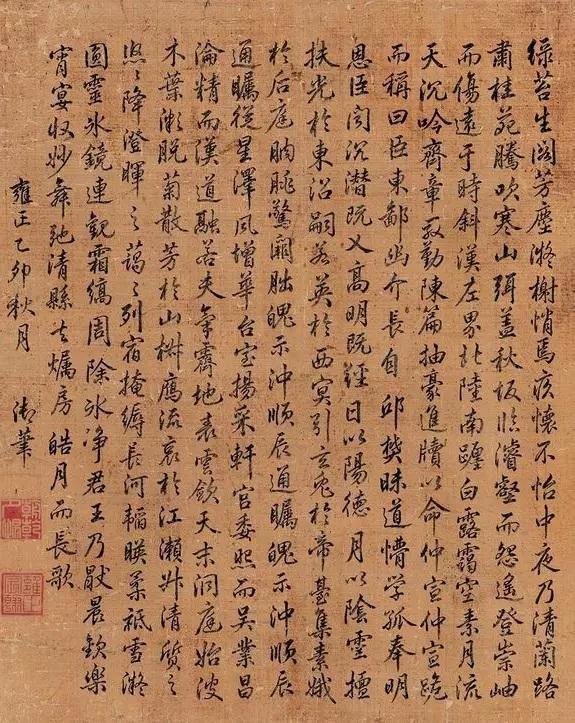 綠苔生閣芳塵凝榭悄焉疚懷不怡中夜乃清蘭路
肅桂苑騰吹寒山弭蓋秋坂臨濬壑而怨遙登崇岫
而傷遠于時斜漢左界北陸南躔白露靄空素月流
天沉吟齊章殷勤陳篇抽毫進牘以命仲宣仲宣跪
而稱曰臣東鄙幽介長自邱樊昧道懵學孤奉明
恩臣聞沉潛既乂高明既經日以陽德月以陰靈擅
扶光於東沼嗣若英於西冥引玄兔於帝臺集素娥
於后庭朒朓驚闕朏魄示沖順辰通矚魄示沖順辰
通矚從星澤風增華台室揚采軒宮委照而吳業昌
淪精而漢道融若夫氣霽地表雲斂天末洞庭始波
木葉漸脫菊散芳於山樹鴈流哀於江瀨升清質之
悠〻降澄暉之藹〻列宿掩縟長河韜暎柔祇雪凝
圓靈水鏡連觀霜縞周除冰淨君王乃厭晨歡樂
宵宴收妙舞弛清縣去燭房皓月而長歌
雍正乙卯秋月 御筆